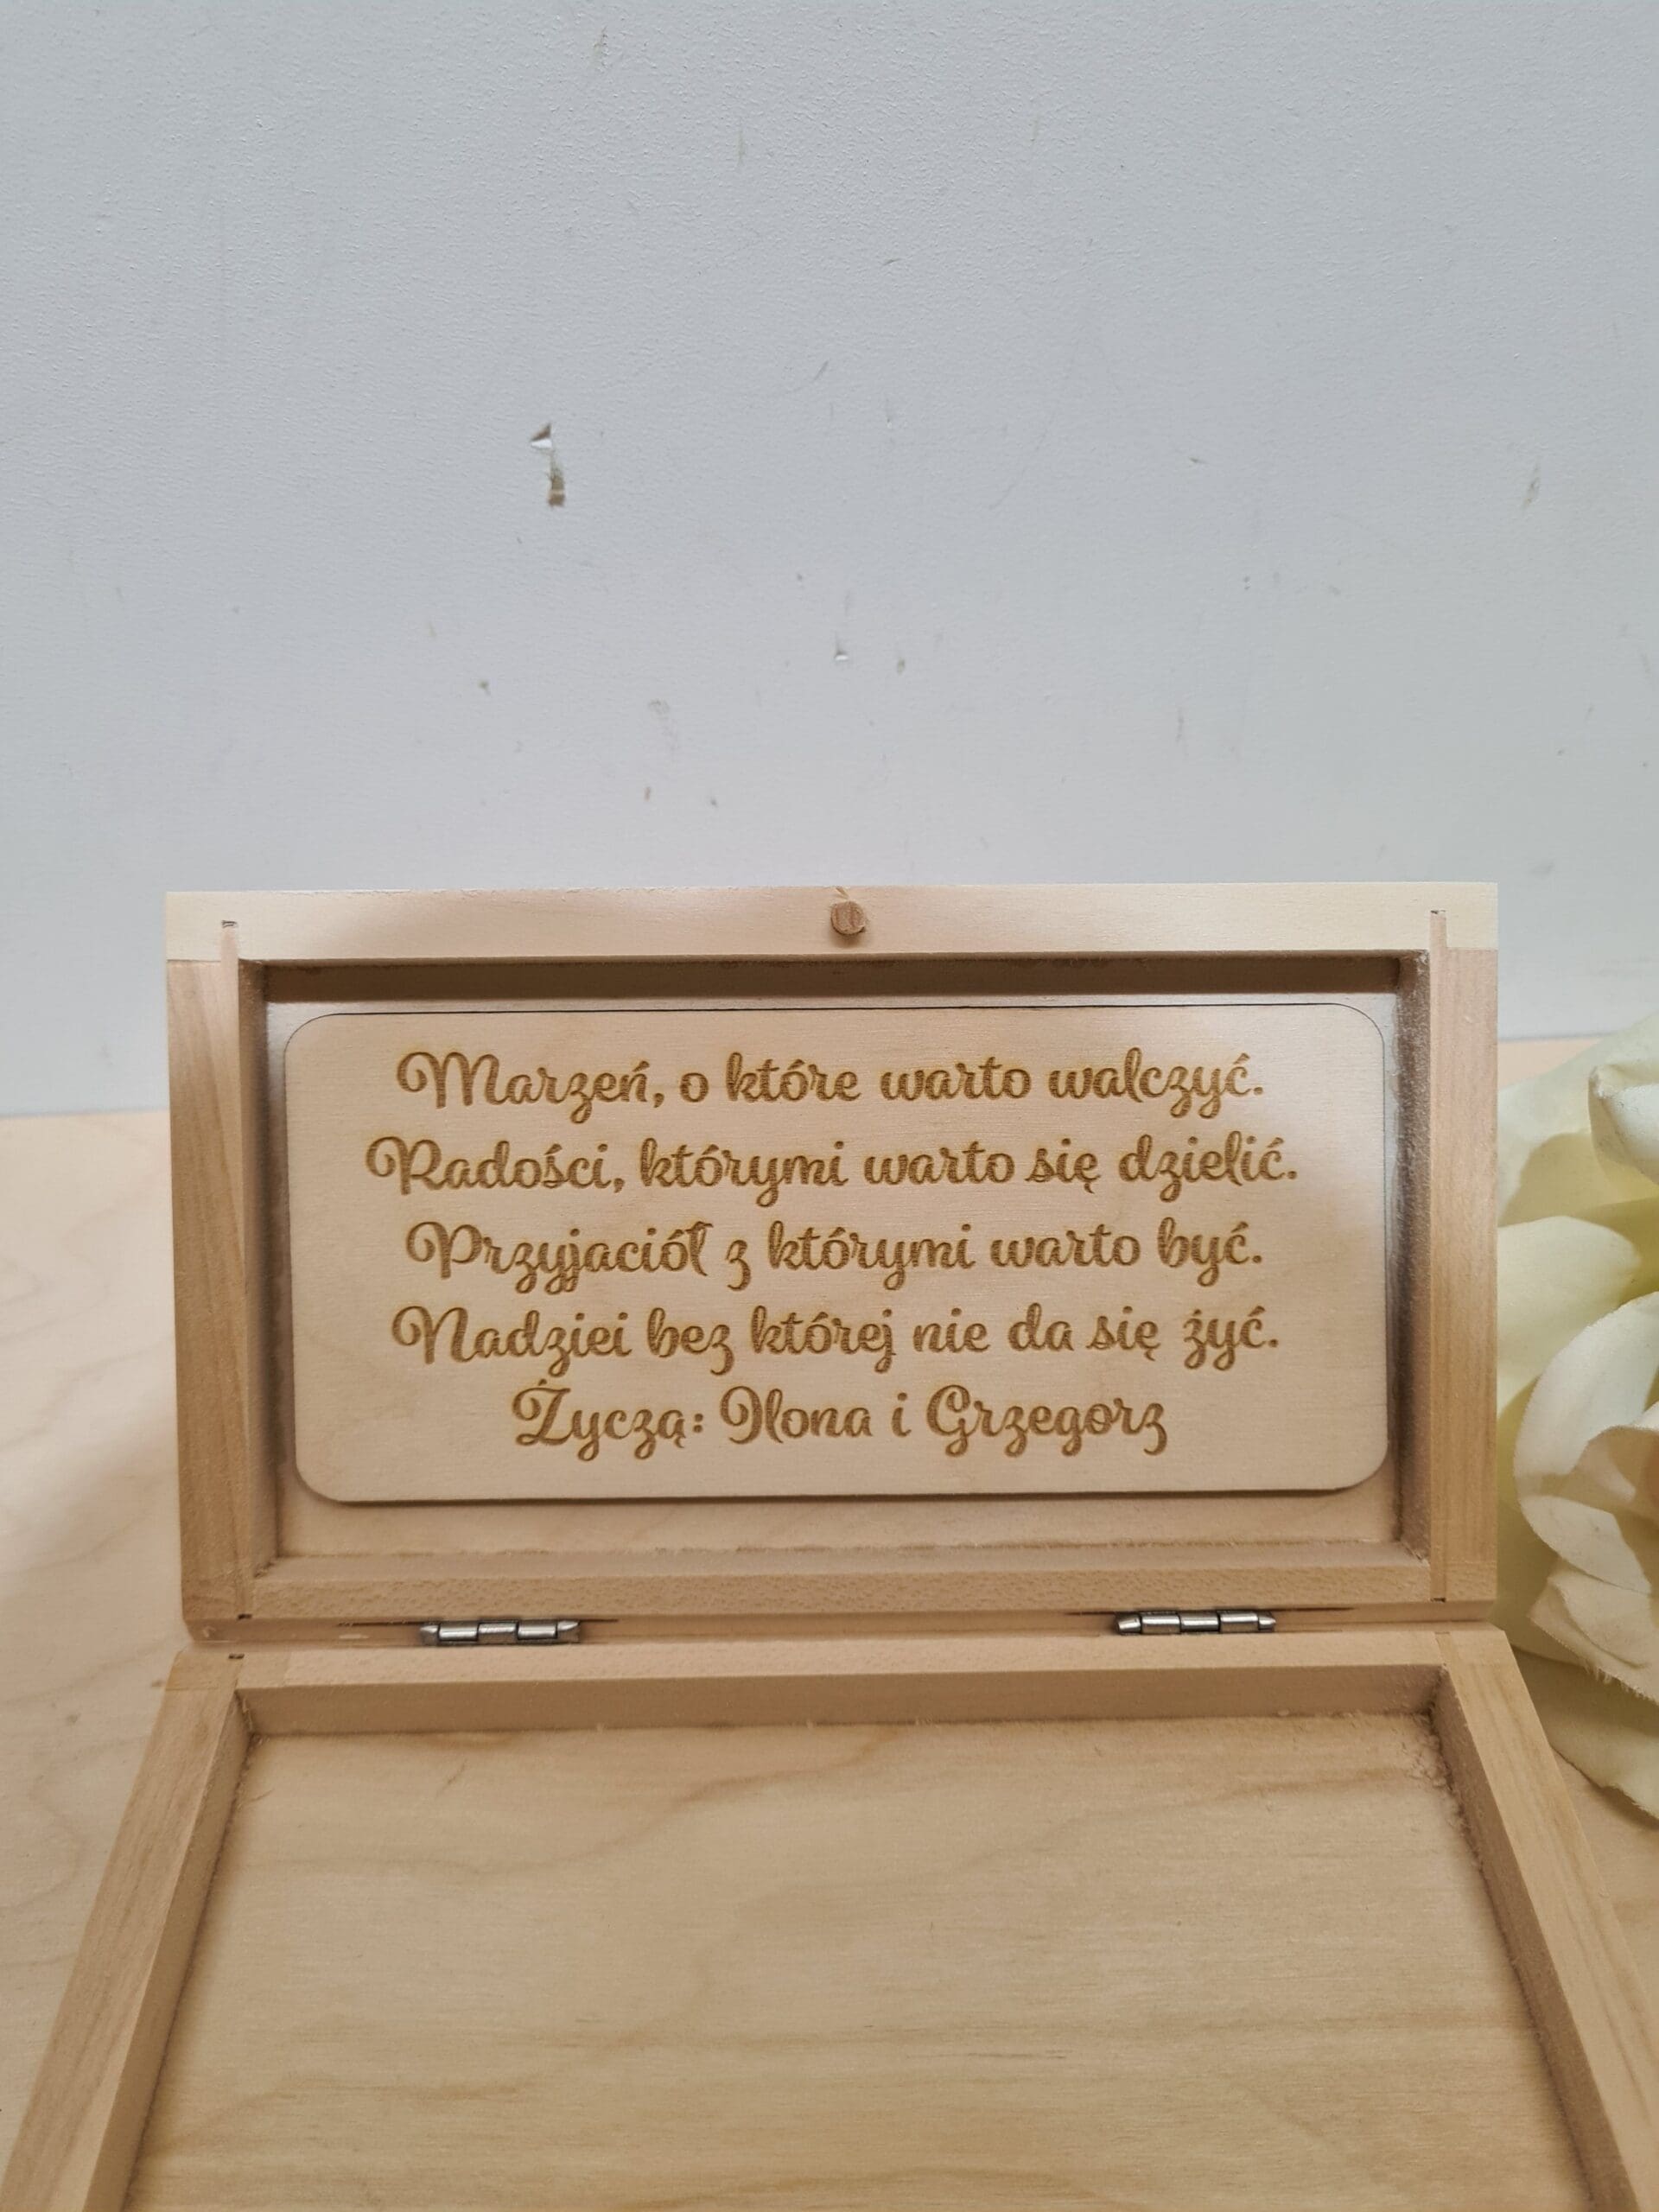 Marzeń, o które warto walczyć.
Radości, którymi warto się dzielić.
Przyjaciół z którymi warto być.
Nadziei bez której nie da się żyć.
Życzą: Ilona i Grzegorz